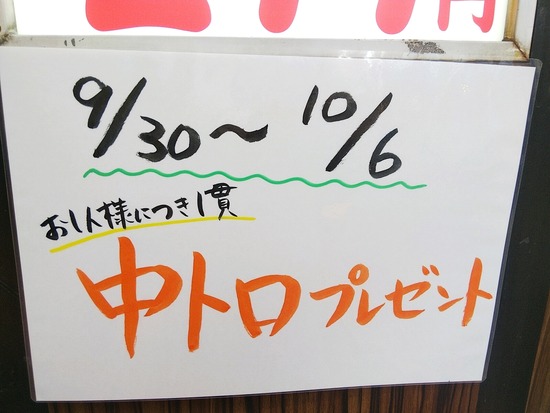 9/30〜10/6
お1人様につき1貫
中トロプレゼント